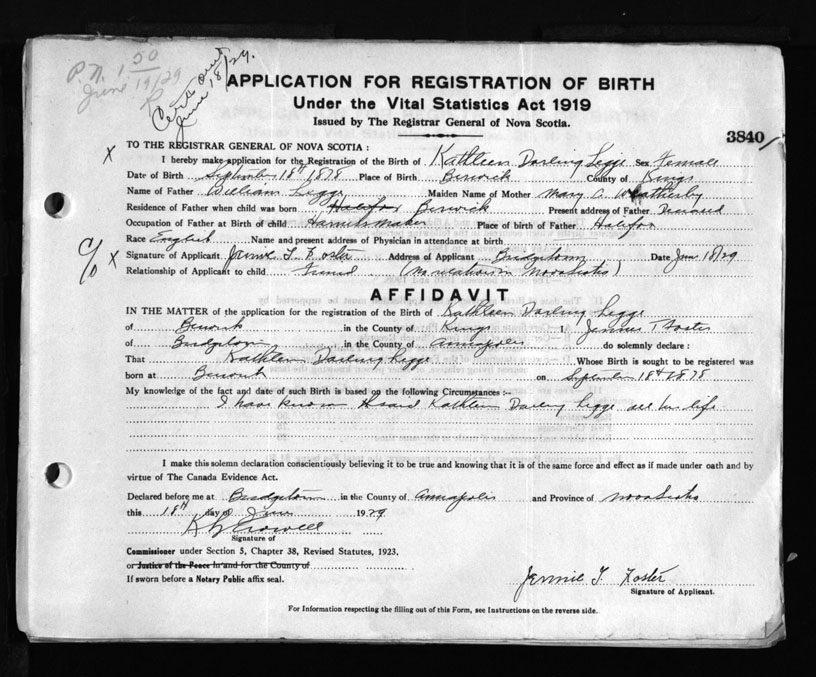 P.N. 1 50
June 19/29
Certs out
June 18/29.
APPLICATION FOR REGISTRATION OF BIRTH
Under the Vital Statistics Act 1919
Issued by The Registrar General of Nova Scotia.
3840
TO THE REGISTRAR GENERAL OF NOVA SCOTIA :
x
I hereby make application for the Registration of the Birth of Kathleen Darling Legge Sex Female
Date of Birth September 18th 1878 Place of Birth Berwick County of Kings
Name of Father William Legge Maiden Name of Mother Mary O. Weatherby
Residence of Father when child was born Halifax Berwick Present address of Father Deceased
Occupation of Father at Birth of child Harness maker Place of birth of Father Halifax
Race English Name and present address of Physician in attendance at birth
c/o x Signature of Applicant Jennie T. Foster Address of Applicant Bridgetown Date June 18/29
Relationship of Applicant to child Friend (No relations in Nova Scotia)
AFFIDAVIT
IN THE MATTER of the application for the registration of the Birth of Kathleen Darling Legge
of Berwick in the County of Kings I Jennie T Foster
of Bridgetown in the County of Annapolis do solemnly declare :
That Kathleen Darling Legge Whose Birth is sought to be registered was
born at Berwick on September 18th 1878
My knowledge of the fact and date of such Birth is based on the following Circumstances :-
I have known the said Kathleen Darling Legge all her life
I make this solemn declaration conscientiously believing it to be true and knowing that it is of the same force and effect as if made under oath and by
virtue of The Canada Evidence Act.
Declared before me at Bridgetown in the County of Annapolis and Province of Nova Scotia
this 18th day of June 1929
Crowell
Signature of
Commissioner under Section 5, Chapter 38, Revised Statutes, 1923.
or Justice of the Peace in and for the County of
If sworn before a Notary Public affix seal.
Jennie T. Foster
Signature of Applicant.
For Information respecting the filling out of this Form, see Instructions on the reverse side.